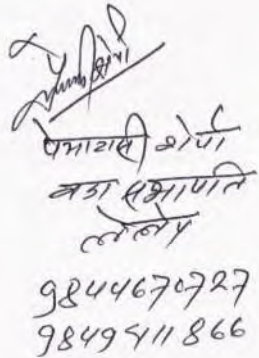 पेमाटासी शेर्पा
वडा सभापति
लेलेप
9844670727
9849411866